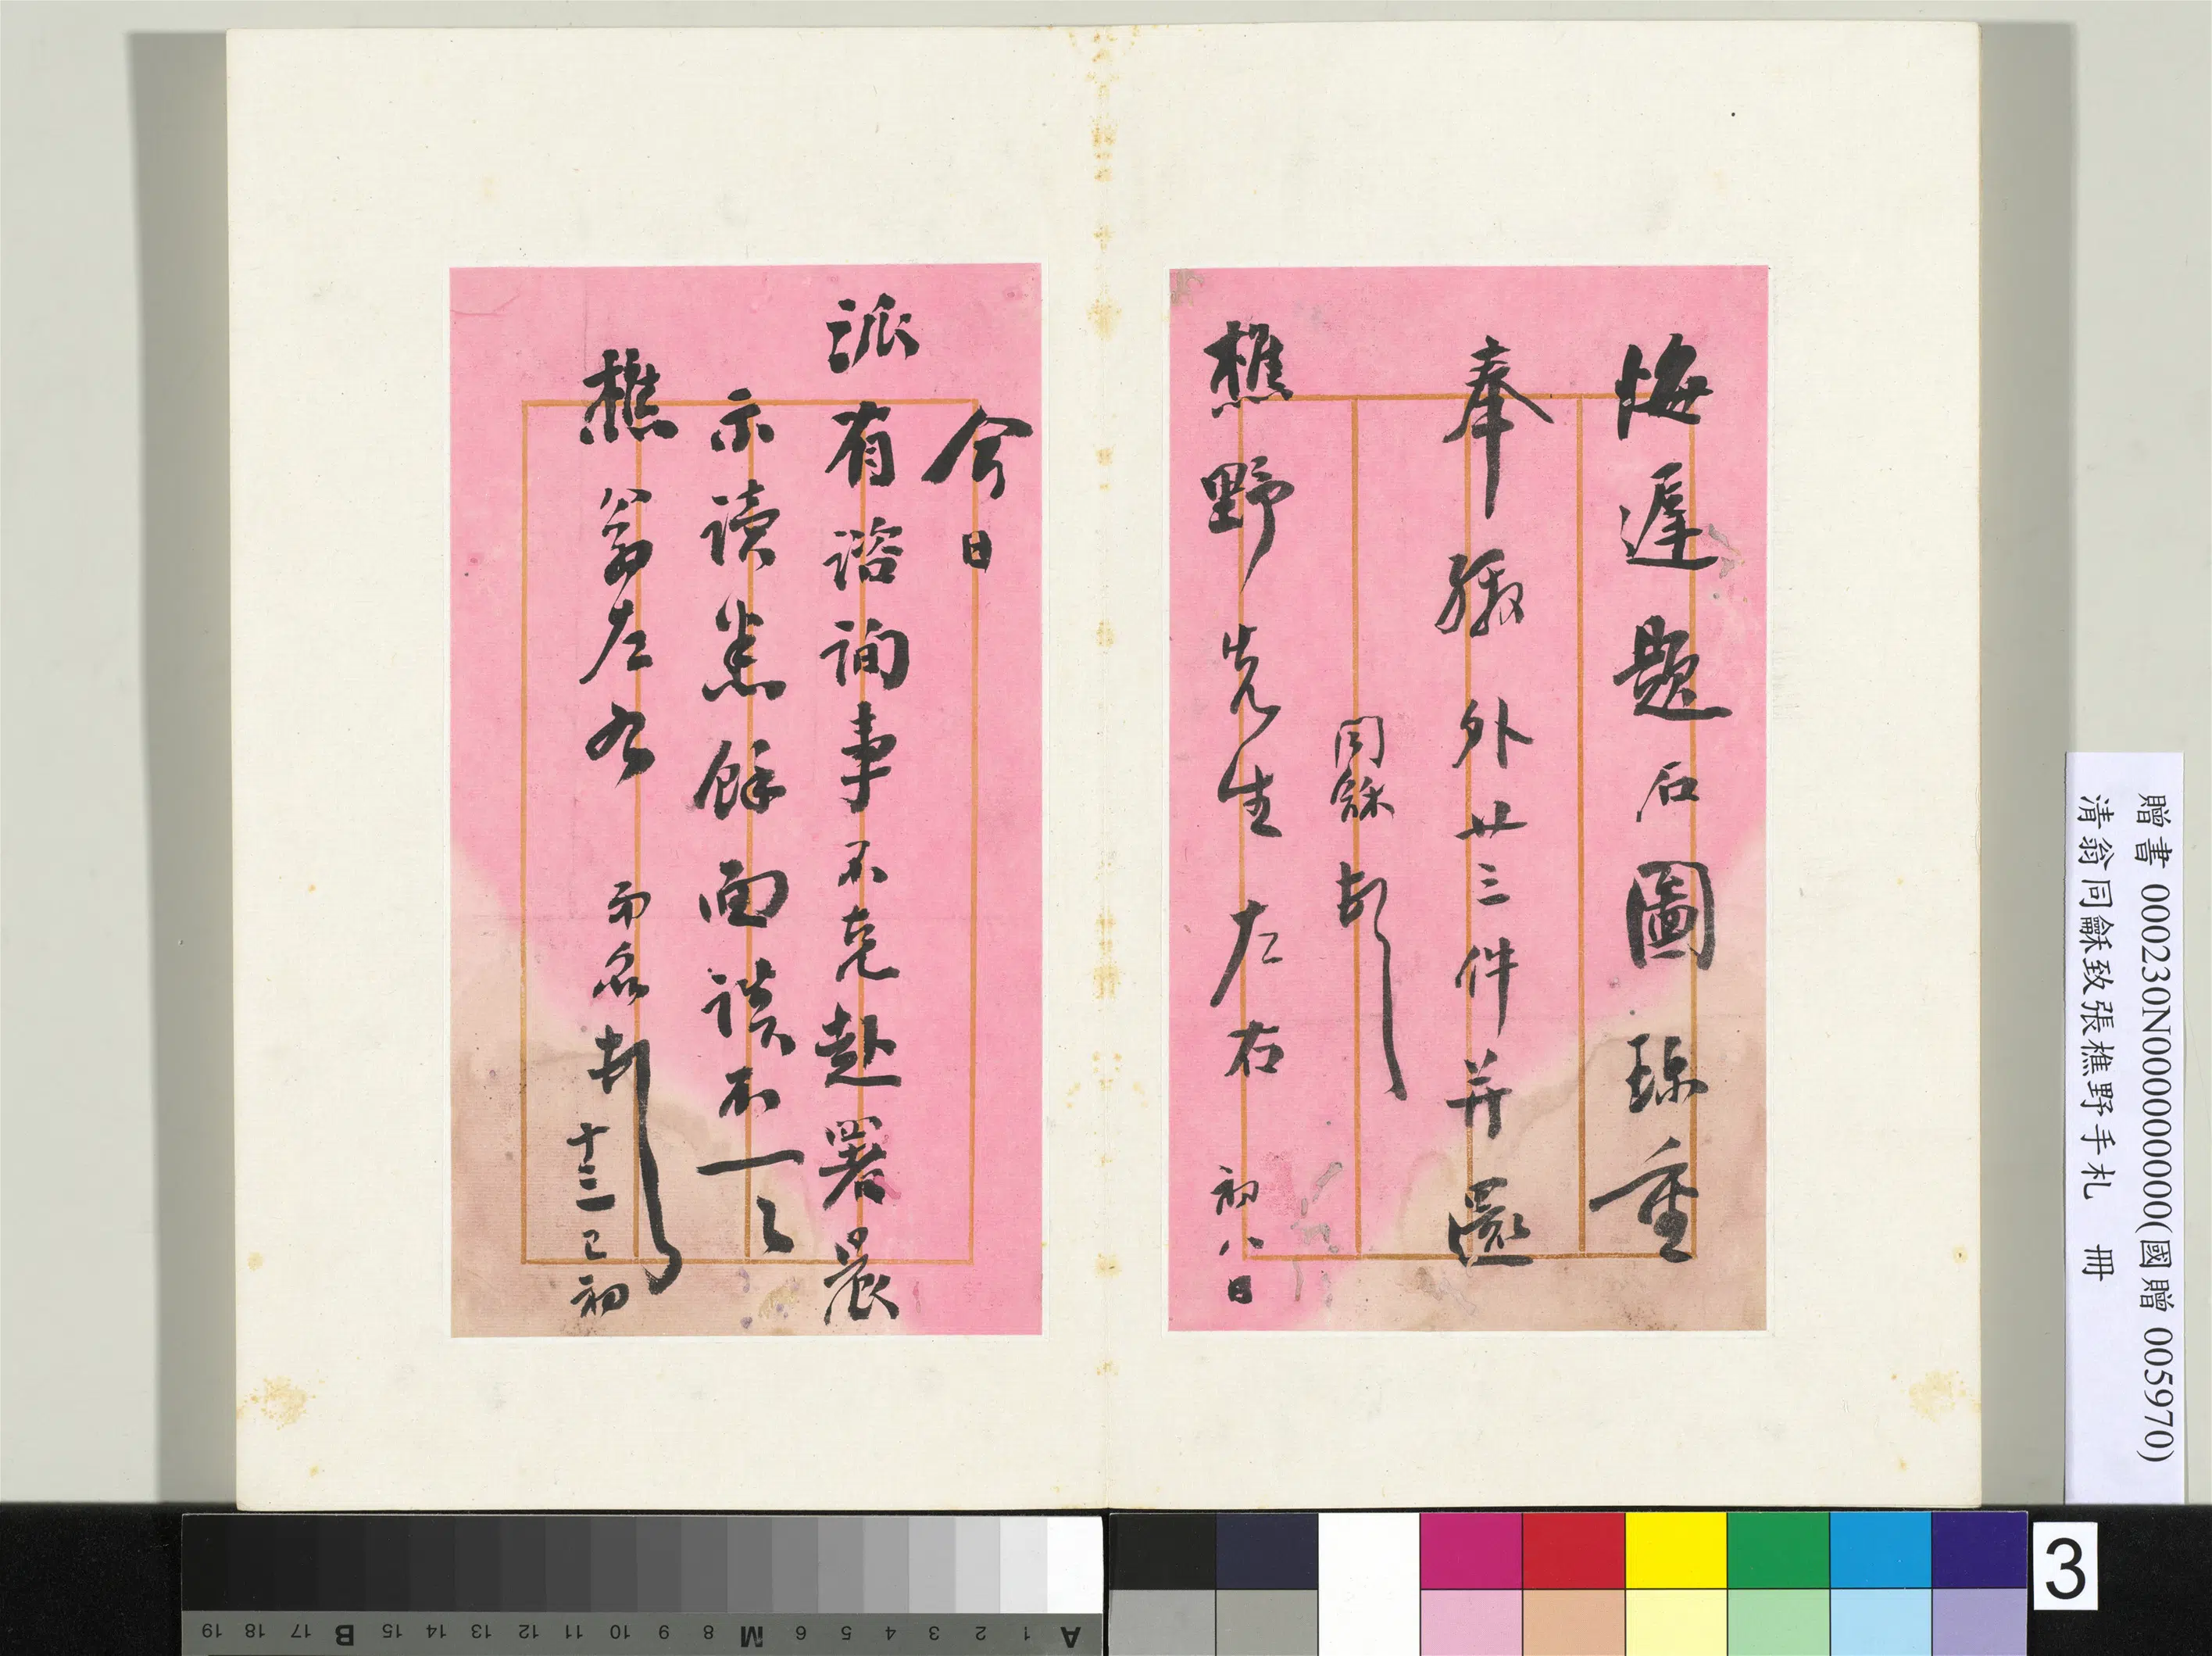 悔遲題石圖珎重
奉繳外廿三件并還
同龢頓
樵野先生左右 初八日
今日
派有諮詢事不克赴署晨
示讀悉餘面談不一一
樵翁左右 名頓 十三巳初
贈書 000230N000000000(國贈 005970)
清翁同龢致張樵野手札 冊
3
A 1 2 3 4 5 6 M 8 9 10 11 12 13 14 15 B 17 18 19